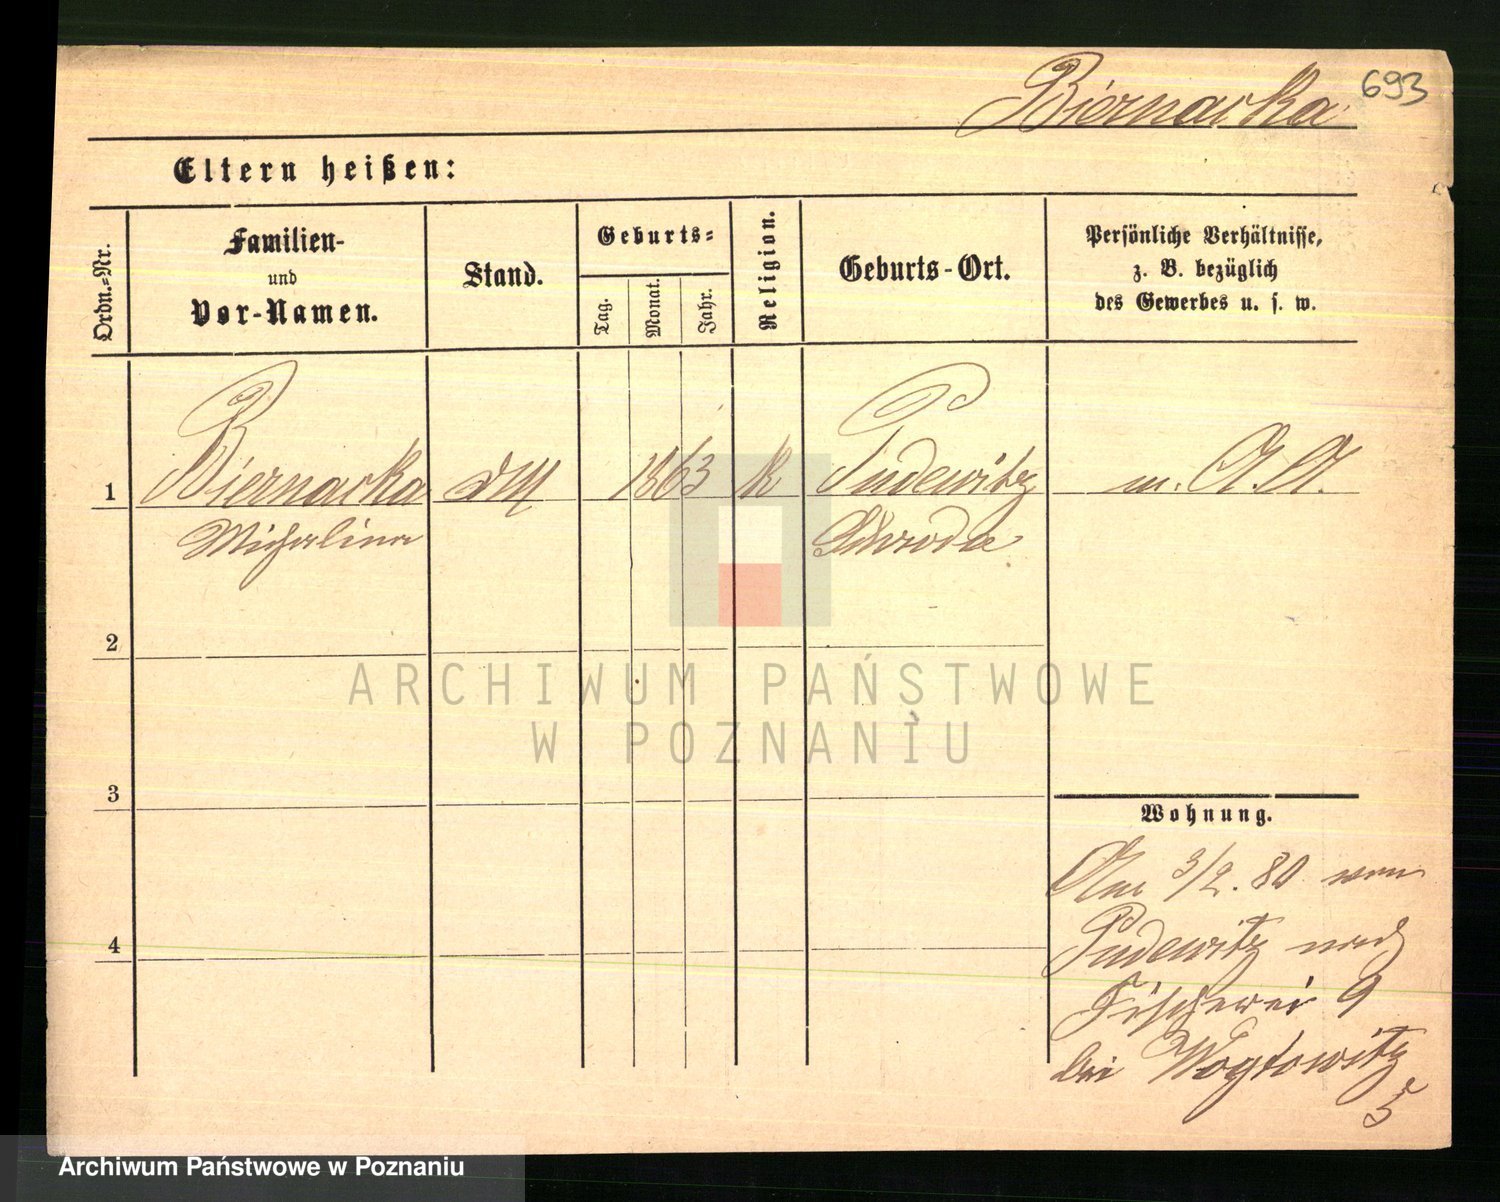 693
Biernacka
Eltern heißen:
Ordn.-Nr.
Familien-
und
Vor-Namen.
Stand.
Geburts-
Tag.
Monat.
Jahr.
Religion.
Geburts-Ort.
Persönliche Verhältnisse,
z. B. bezüglich
des Gewerbes u. s. w.
1 Biernacka DM 1863 k Pudewitz m. A.A.
Michalina Schroda
2
3
4
Wohnung.
Am 3/2. 80 von
Pudewitz nach
Fischerei 9
bei Wogtowitz
5
ARCHIWUM PAŃSTWOWE
W POZNANIU
Archiwum Państwowe w Poznaniu